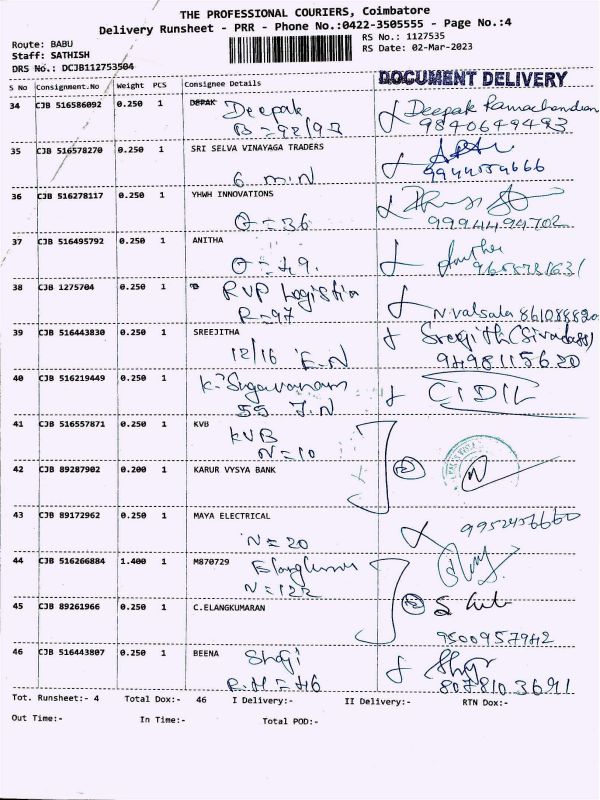 THE PROFESSIONAL COURIERS, Coimbatore
Delivery Runsheet - PRR - Phone No.:0422-3505555 - Page No.:4
Route: BABU RS No.: 1127535
Staff: SATHISH RS Date: 02-Mar-2023
DRS No.: DCJB112753504
S No Consignment.No Weight PCS Consignee Details DOCUMENT DELIVERY
34 CJB 516586092 0.250 1 DEPAK Deepak Deepak Ramachandran
B=92/9B 9840649493
35 CJB 516578270 0.250 1 SRI SELVA VINAYAGA TRADERS
6 min 9944054666
36 CJB 516278117 0.250 1 YHWH INNOVATIONS
O=36 9994494702
37 CJB 516495792 0.250 1 ANITHA
O=49.
38 CJB 1275704 0.250 1 RVP Logistia
R=97 N.valsala
39 CJB 516443830 0.250 1 SREEJITHA Sreejith (Sivadass)
12/16 E.N 9498115620
40 CJB 516219449 0.250 1 K. Sugavanam
55 J.N
41 CJB 516557871 0.250 1 KVB
KVB
N=10
42 CJB 89287902 0.200 1 KARUR VYSYA BANK 2
43 CJB 89172962 0.250 1 MAYA ELECTRICAL
N=20 9952456660
44 CJB 516266884 1.400 1 M870729
N=122
45 CJB 89261966 0.250 1 C.ELANGKUMARAN 2
9500957942
46 CJB 516443807 0.250 1 BEENA Shaji
R.H=46 8078103691
Tot. Runsheet:- 4 Total Dox:- 46 I Delivery:- II Delivery:- RTN Dox:-
Out Time:- In Time:- Total POD:-